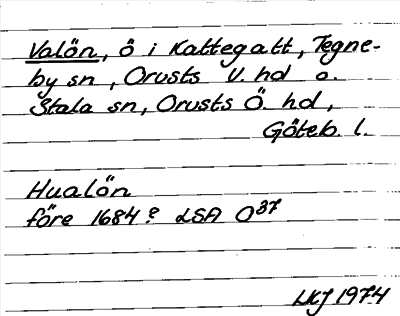 Valön, ö i Kattegatt, Tegne-
by sn, Orusts V. hd o.
Stala sn, Orusts Ö. hd,
Göteb. l.
Hualön
före 1684? LSA O37
1974